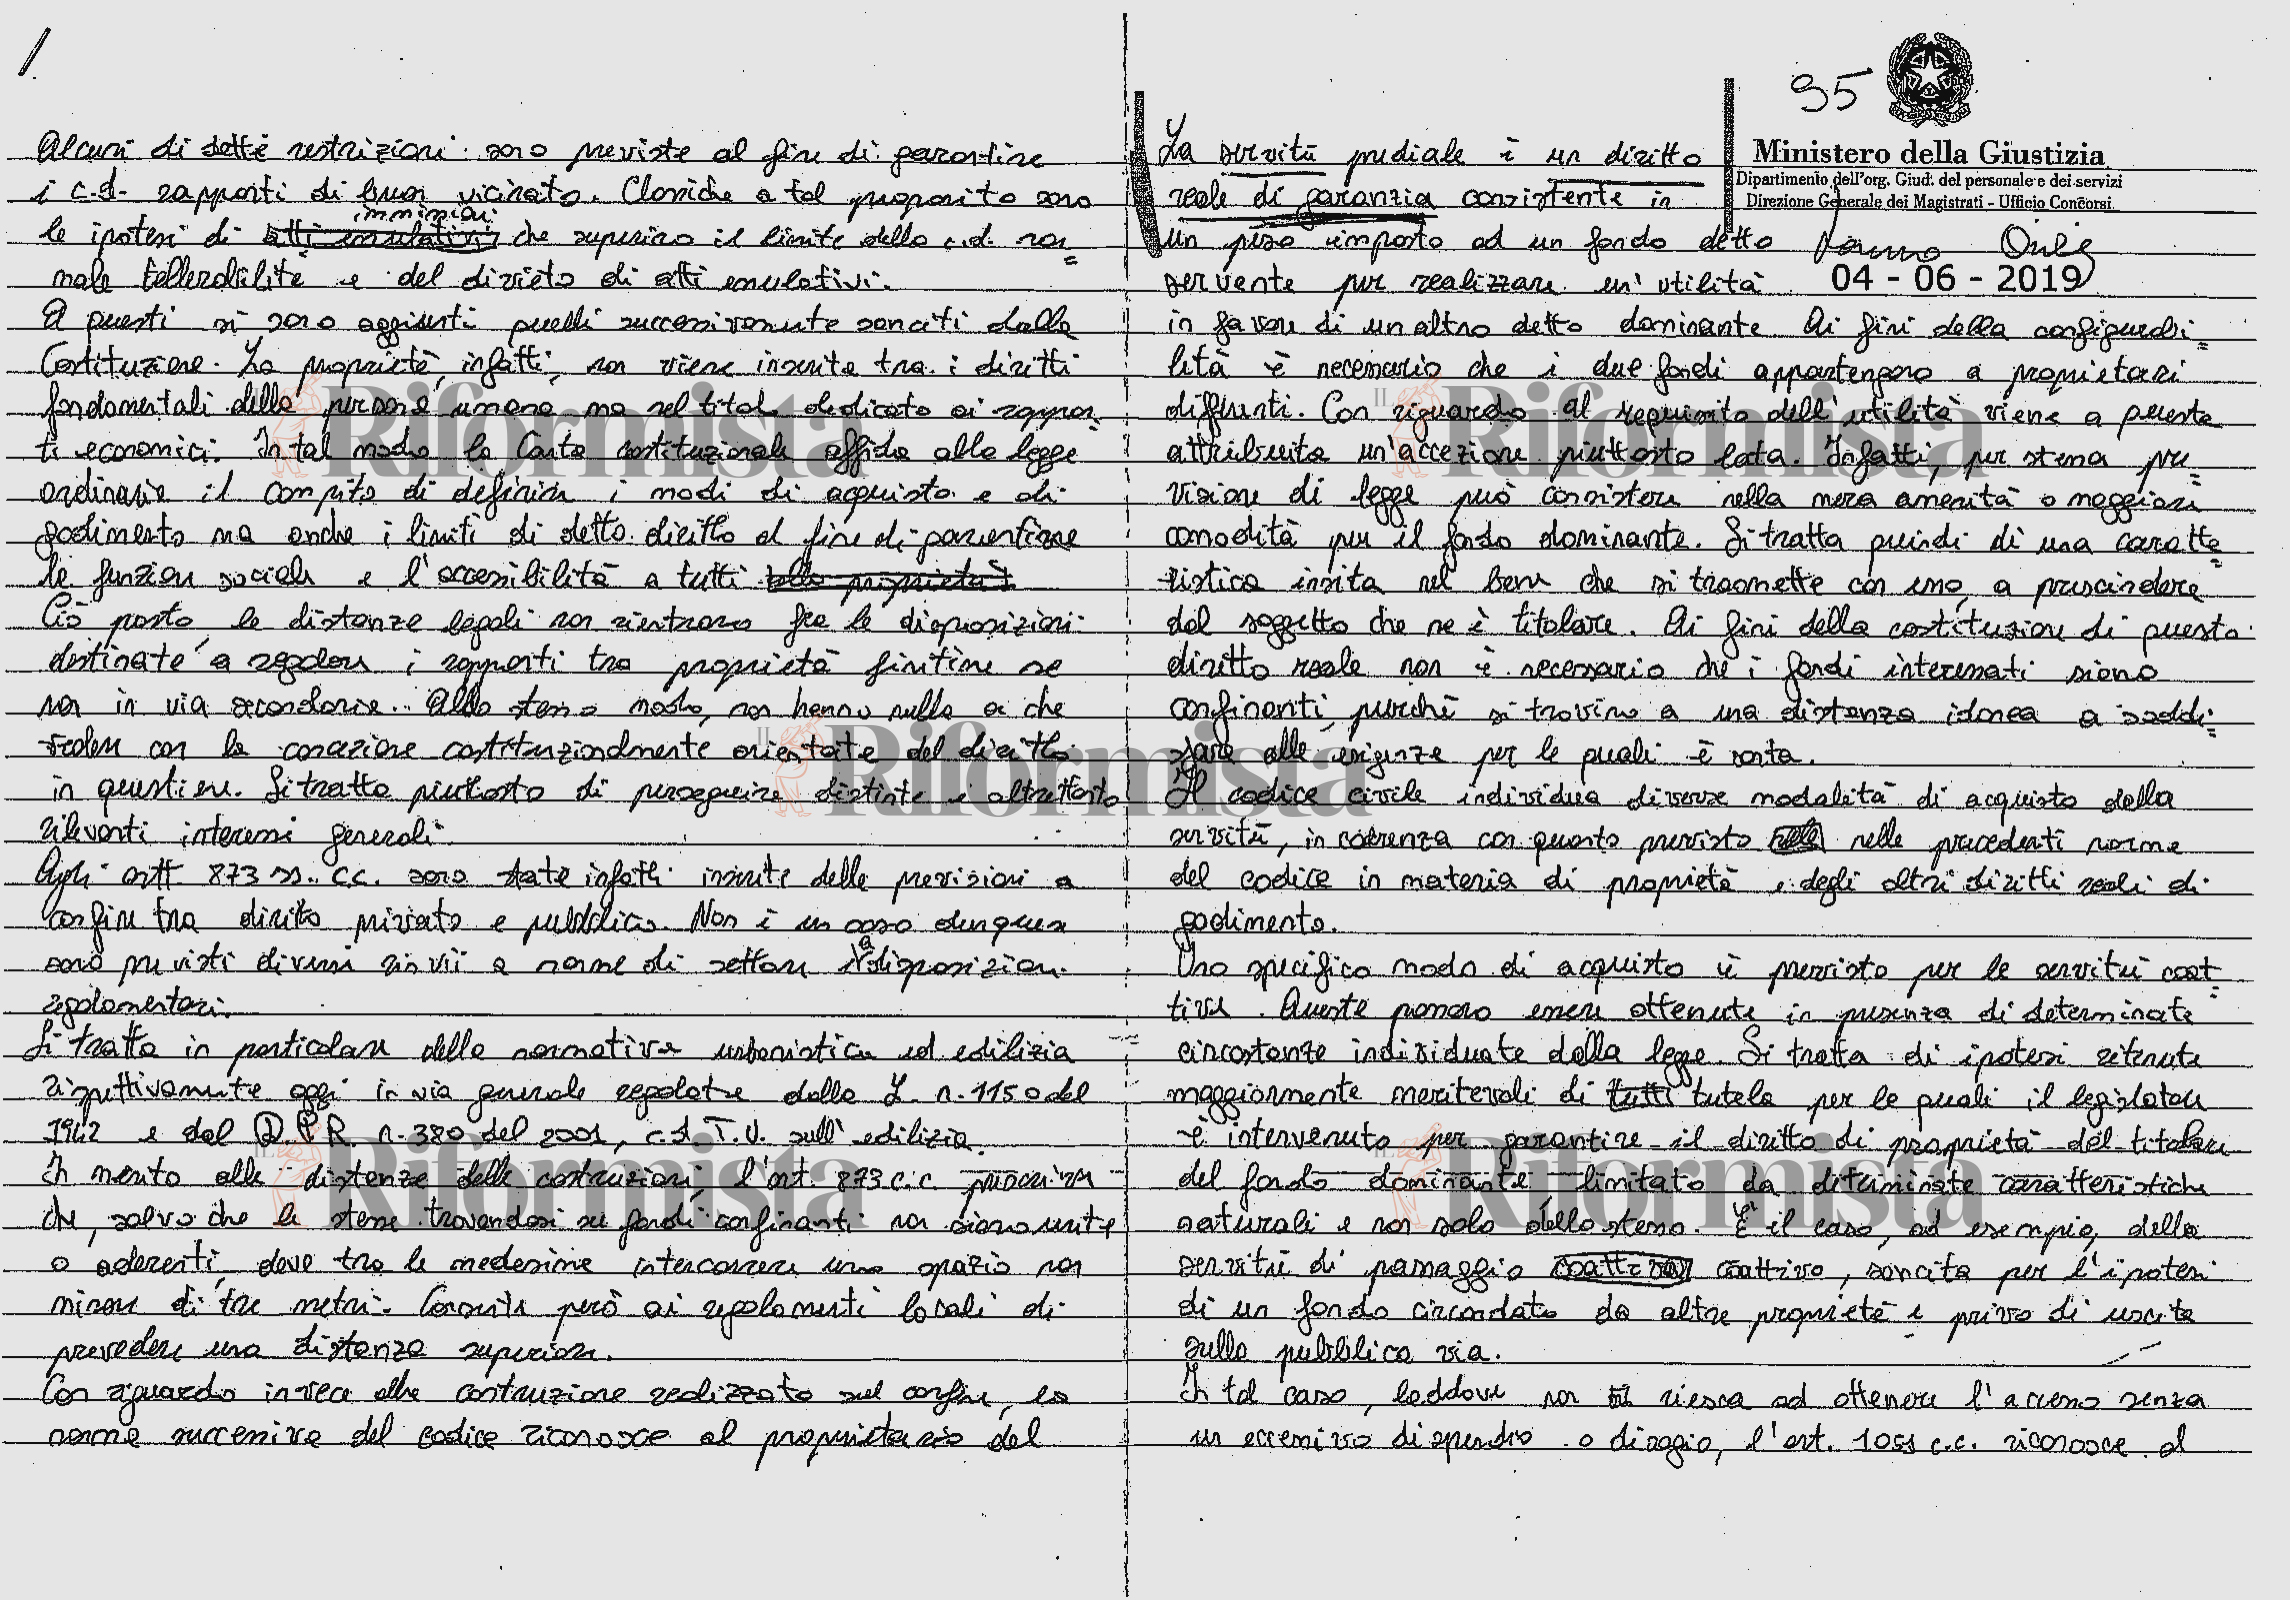 Alcuni di dette restrizioni sono previste al fine di garantire
i c.d. rapporti di buon vicinato. Classiche a tal proposito sono
immissioni
le ipotesi di atti emulativi che superino il limite della c.d. nor=
male tollerabilità e del divieto di atti emulativi.
A questi si sono aggiunti quelli successivamente sanciti dalla
Costituzione. La proprietà, infatti, non viene inserita tra i diritti
fondamentali della persona umana ma nel titolo dedicato ai rappor=
ti economici. In tal modo la Carta costituzionale affida alla legge
ordinaria il compito di definire i modi di acquisto e di
godimento ma anche i limiti di detto diritto al fine di garantirne
la funzione sociale e l'accessibilità a tutti della proprietà.
Ciò posto, le distanze legali non rientrano fra le disposizioni
destinate a regolare i rapporti tra proprietà finitime se
non in via secondaria. Allo stesso modo, non hanno nulla a che
vedere con la concezione costituzionalmente orientata del diritto
in questione. Si tratta piuttosto di perseguire distinti e altrettanto
rilevanti interessi generali.
Agli artt. 873 ss. c.c. sono state infatti inserite delle previsioni a
confine tra diritto privato e pubblico. Non è un caso dunque
sono previsti diversi rinvii a norme di settore a disposizioni
regolamentari.
Si tratta in particolare della normativa urbanistica ed edilizia
rispettivamente oggi in via generale regolate dalla L. n. 1150 del
1942 e dal D.P.R. n. 380 del 2001, c.d. T.U. sull'edilizia.
In merito alle distanze delle costruzioni, l'art. 873 c.c. prescrive
che, salvo che le stesse trovandosi su fondi confinanti non siano unite
o aderenti, deve tra le medesime intercorrere uno spazio non
minore di tre metri. Consente però ai regolamenti locali di
prevedere una distanza superiore.
Con riguardo invece alla costruzione realizzata sul confine, la
norma successiva del codice riconosce al proprietario del
95
Ministero della Giustizia
Dipartimento dell'org. Giud. del personale e dei servizi
Direzione Generale dei Magistrati - Ufficio Concorsi
04 - 06 - 2019
La servitù prediale è un diritto
reale di garanzia consistente in
un peso imposto ad un fondo detto
servente per realizzare un'utilità
in favore di un altro detto dominante. Ai fini della configurabi=
lità è necessario che i due fondi appartengano a proprietari
differenti. Con riguardo al requisito dell'utilità viene a questa
attribuita un'accezione piuttosto lata. Infatti, per stessa pre=
visione di legge può consistere nella mera amenità o maggiore
comodità per il fondo dominante. Si tratta quindi di una caratte=
ristica insita nel bene che si trasmette con esso, a prescindere
dal soggetto che ne è titolare. Ai fini della costituzione di questo
diritto reale non è necessario che i fondi interessati siano
confinanti, purché si trovino a una distanza idonea a soddi=
sfare alle esigenze per le quali è sorta.
Il codice civile individua diverse modalità di acquisto della
servitù, in coerenza con quanto previsto nelle precedenti norme
del codice in materia di proprietà e degli altri diritti reali di
godimento.
Uno specifico modo di acquisto è previsto per le servitù coat=
tive. Queste possono essere ottenute in presenza di determinate
circostanze individuate dalla legge. Si tratta di ipotesi ritenute
maggiormente meritevoli di tutti tutela per le quali il legislatore
è intervenuto per garantire il diritto di proprietà del titolare
del fondo dominante limitato da determinate caratteristiche
naturali e non solo dello stesso. È il caso, ad esempio, della
servitù di passaggio coattivo coattivo, sancita per l'ipotesi
di un fondo circondato da altre proprietà e privo di uscita
sulla pubblica via.
In tal caso, laddove non riesca ad ottenere l'accesso senza
un eccessivo dispendio o disagio, l'art. 1051 c.c. riconosce al
Riformista
Riformista
Riformista
Riformista
Riformista